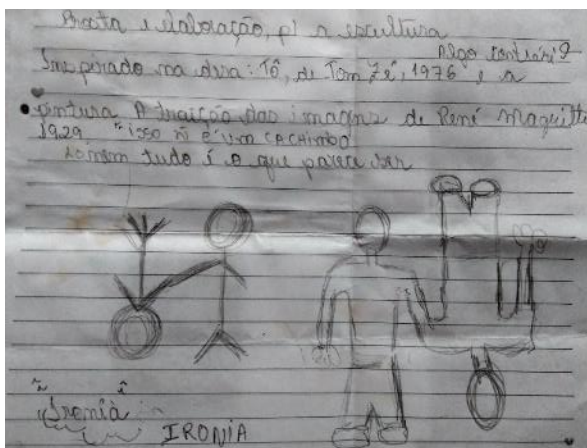 elaboração, p/ a escultura
Algo contrário?
Inspirado na obra: Tô, de Tom Zé, 1976 e a
pintura A traição das imagens de René Magritte
1929 "isso ñ é um CACHIMBO
nem tudo é o que parece ser
"Ironia"
IRONIA